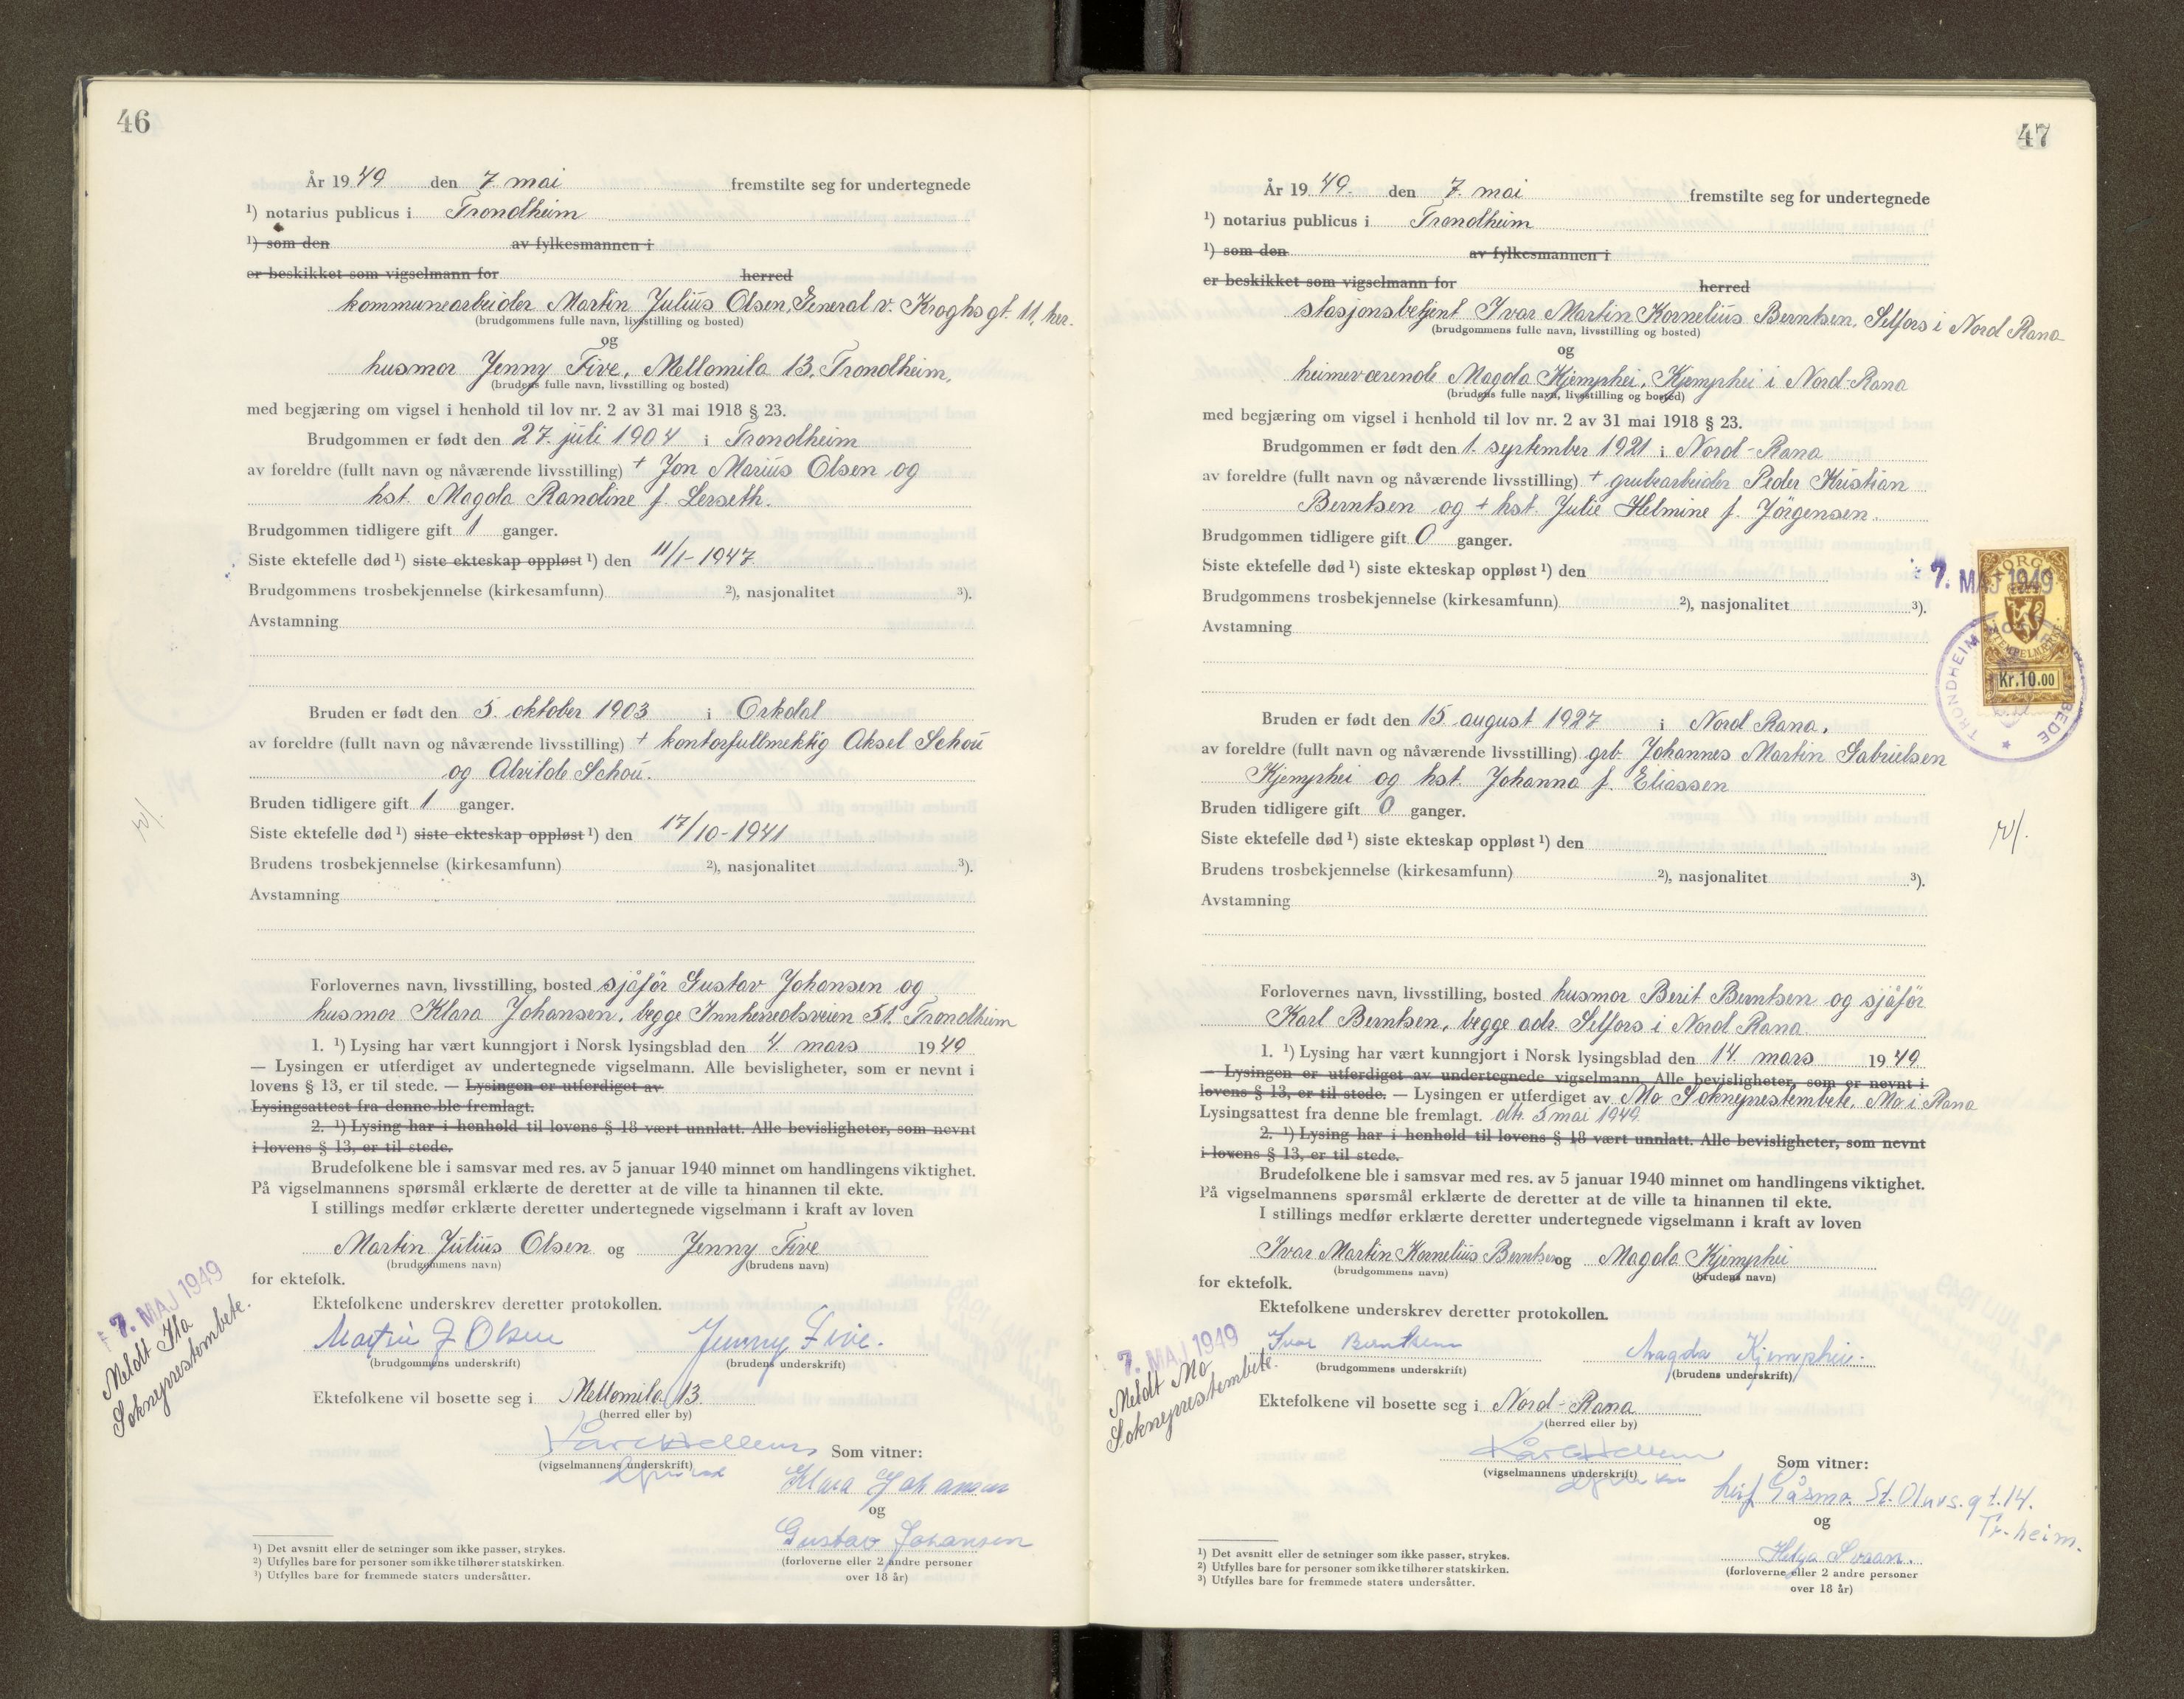 46
År 1949 den 7. mai fremstilte seg for undertegnede
¹) notarius publicus i Trondheim
¹) som den av fylkesmannen i
er beskikket som vigselmann for herred
kommunearbeider Martin Julius Olsen, General v. Kroghs gt. 11, her.
(brudgommens fulle navn, livsstilling og bosted)
og
husmor Jenny Five, Mellomila 13, Trondheim,
(brudens fulle navn, livsstilling og bosted)
med begjæring om vigsel i henhold til lov nr. 2 av 31 mai 1918 § 23.
Brudgommen er født den 27. juli 1904 i Trondheim
av foreldre (fullt navn og nåværende livsstilling) + Jon Marius Olsen og
hst. Magda Randine f. Lerseth.
Brudgommen tidligere gift 1 ganger.
Siste ektefelle død ¹) siste ekteskap oppløst ¹) den 11/1-1947
Brudgommens trosbekjennelse (kirkesamfunn) ²), nasjonalitet ³).
Avstamning
Bruden er født den 5. oktober 1903 i Orkdal
av foreldre (fullt navn og nåværende livsstilling) + kontorfullmektig Aksel Schou
og Alvilde Schou.
Bruden tidligere gift 1 ganger.
Siste ektefelle død ¹) siste ekteskap oppløst ¹) den 17/10-1941
Brudens trosbekjennelse (kirkesamfunn) ²), nasjonalitet ³).
Avstamning
Forlovernes navn, livsstilling, bosted sjåför Gustav Johansen og
husmor Klara Johansen, begge Innherredsveien 51, Trondheim
1. ¹) Lysing har vært kunngjort i Norsk lysingsblad den 4. mars 1949
— Lysingen er utferdiget av undertegnede vigselmann. Alle bevisligheter, som er nevnt i
lovens § 13, er til stede. — Lysingen er utferdiget av
Lysingsattest fra denne ble fremlagt.
2. ¹) Lysing har i henhold til lovens § 18 vært unnlatt. Alle bevisligheter, som nevnt
i lovens § 13, er til stede.
Brudefolkene ble i samsvar med res. av 5 januar 1940 minnet om handlingens viktighet.
På vigselmannens spørsmål erklærte de deretter at de ville ta hinannen til ekte.
I stillings medfør erklærte deretter undertegnede vigselmann i kraft av loven
Martin Julius Olsen og Jenny Five
(brudgommens navn) (brudens navn)
for ektefolk.
Ektefolkene underskrev deretter protokollen.
7. MAJ 1949
Meldt Ila
Sokneprestembete.
Martin J Olsen Jenny Five.
(brudgommens underskrift) (brudens underskrift)
Ektefolkene vil bosette seg i Mellomila 13.
(herred eller by)
Som vitner:
(vigselmannens underskrift)
Klara Johansen
og
Gustav Johansen
(forloverne eller 2 andre personer
over 18 år)
¹) Det avsnitt eller de setninger som ikke passer, strykes.
²) Utfylles bare for personer som ikke tilhører statskirken.
³) Utfylles bare for fremmede staters undersåtter.
47
År 1949. den 7. mai fremstilte seg for undertegnede
¹) notarius publicus i Trondheim
¹) som den av fylkesmannen i
er beskikket som vigselmann for herred
stasjonsbetjent Ivar Martin Kornelius Berntsen, Selfors i Nord Rana
(brudgommens fulle navn, livsstilling og bosted)
og
heimeværende Magda Kjemphei, Kjemphei i Nord-Rana
(brudens fulle navn, livsstilling og bosted)
med begjæring om vigsel i henhold til lov nr. 2 av 31 mai 1918 § 23.
Brudgommen er født den 1. september 1921 i Nord-Rana
av foreldre (fullt navn og nåværende livsstilling) + grubearbeider Peder Kristian
Berntsen og + hst. Julie Helmine f. Jörgensen.
Brudgommen tidligere gift 0 ganger.
Siste ektefelle død ¹) siste ekteskap oppløst ¹) den
Brudgommens trosbekjennelse (kirkesamfunn) ²), nasjonalitet ³).
Avstamning
7. MAJ 1949
NORGE
STEMPELMERKE
Kr.10.00
TRONDHEIM
Bruden er født den 15. august 1927 i Nord Rana.
av foreldre (fullt navn og nåværende livsstilling) grb. Johannes Martin Gabrielsen
Kjemphei og hst. Johanna f. Eliassen
Bruden tidligere gift 0 ganger.
Siste ektefelle død ¹) siste ekteskap oppløst ¹) den
Brudens trosbekjennelse (kirkesamfunn) ²), nasjonalitet ³).
Avstamning
Forlovernes navn, livsstilling, bosted husmor Berit Berntsen og sjåför
Karl Berntsen, begge adr. Selfors i Nord Rana.
1. ¹) Lysing har vært kunngjort i Norsk lysingsblad den 14. mars 1949
— Lysingen er utferdiget av undertegnede vigselmann. Alle bevisligheter, som er nevnt i
lovens § 13, er til stede. — Lysingen er utferdiget av Mo Sokneprestembete, Mo i Rana
Lysingsattest fra denne ble fremlagt. dtr. 5 mai 1949.
2. ¹) Lysing har i henhold til lovens § 18 vært unnlatt. Alle bevisligheter, som nevnt
i lovens § 13, er til stede.
Brudefolkene ble i samsvar med res. av 5 januar 1940 minnet om handlingens viktighet.
På vigselmannens spørsmål erklærte de deretter at de ville ta hinannen til ekte.
I stillings medfør erklærte deretter undertegnede vigselmann i kraft av loven
Ivar Martin Kornelius Berntsen og Magda Kjemphei
(brudgommens navn) (brudens navn)
for ektefolk.
Ektefolkene underskrev deretter protokollen.
7. MAJ 1949
Meldt Mo
Sokneprestembete.
Ivar Berntsen Magda Kjemphei.
(brudgommens underskrift) (brudens underskrift)
Ektefolkene vil bosette seg i Nord-Rana
(herred eller by)
Som vitner:
(vigselmannens underskrift)
Leif Gåsmo St. Olavs. gt. 14.
Tr-heim.
og
Helga Svaan.
(forloverne eller 2 andre personer
over 18 år)
¹) Det avsnitt eller de setninger som ikke passer, strykes.
²) Utfylles bare for personer som ikke tilhører statskirken.
³) Utfylles bare for fremmede staters undersåtter.